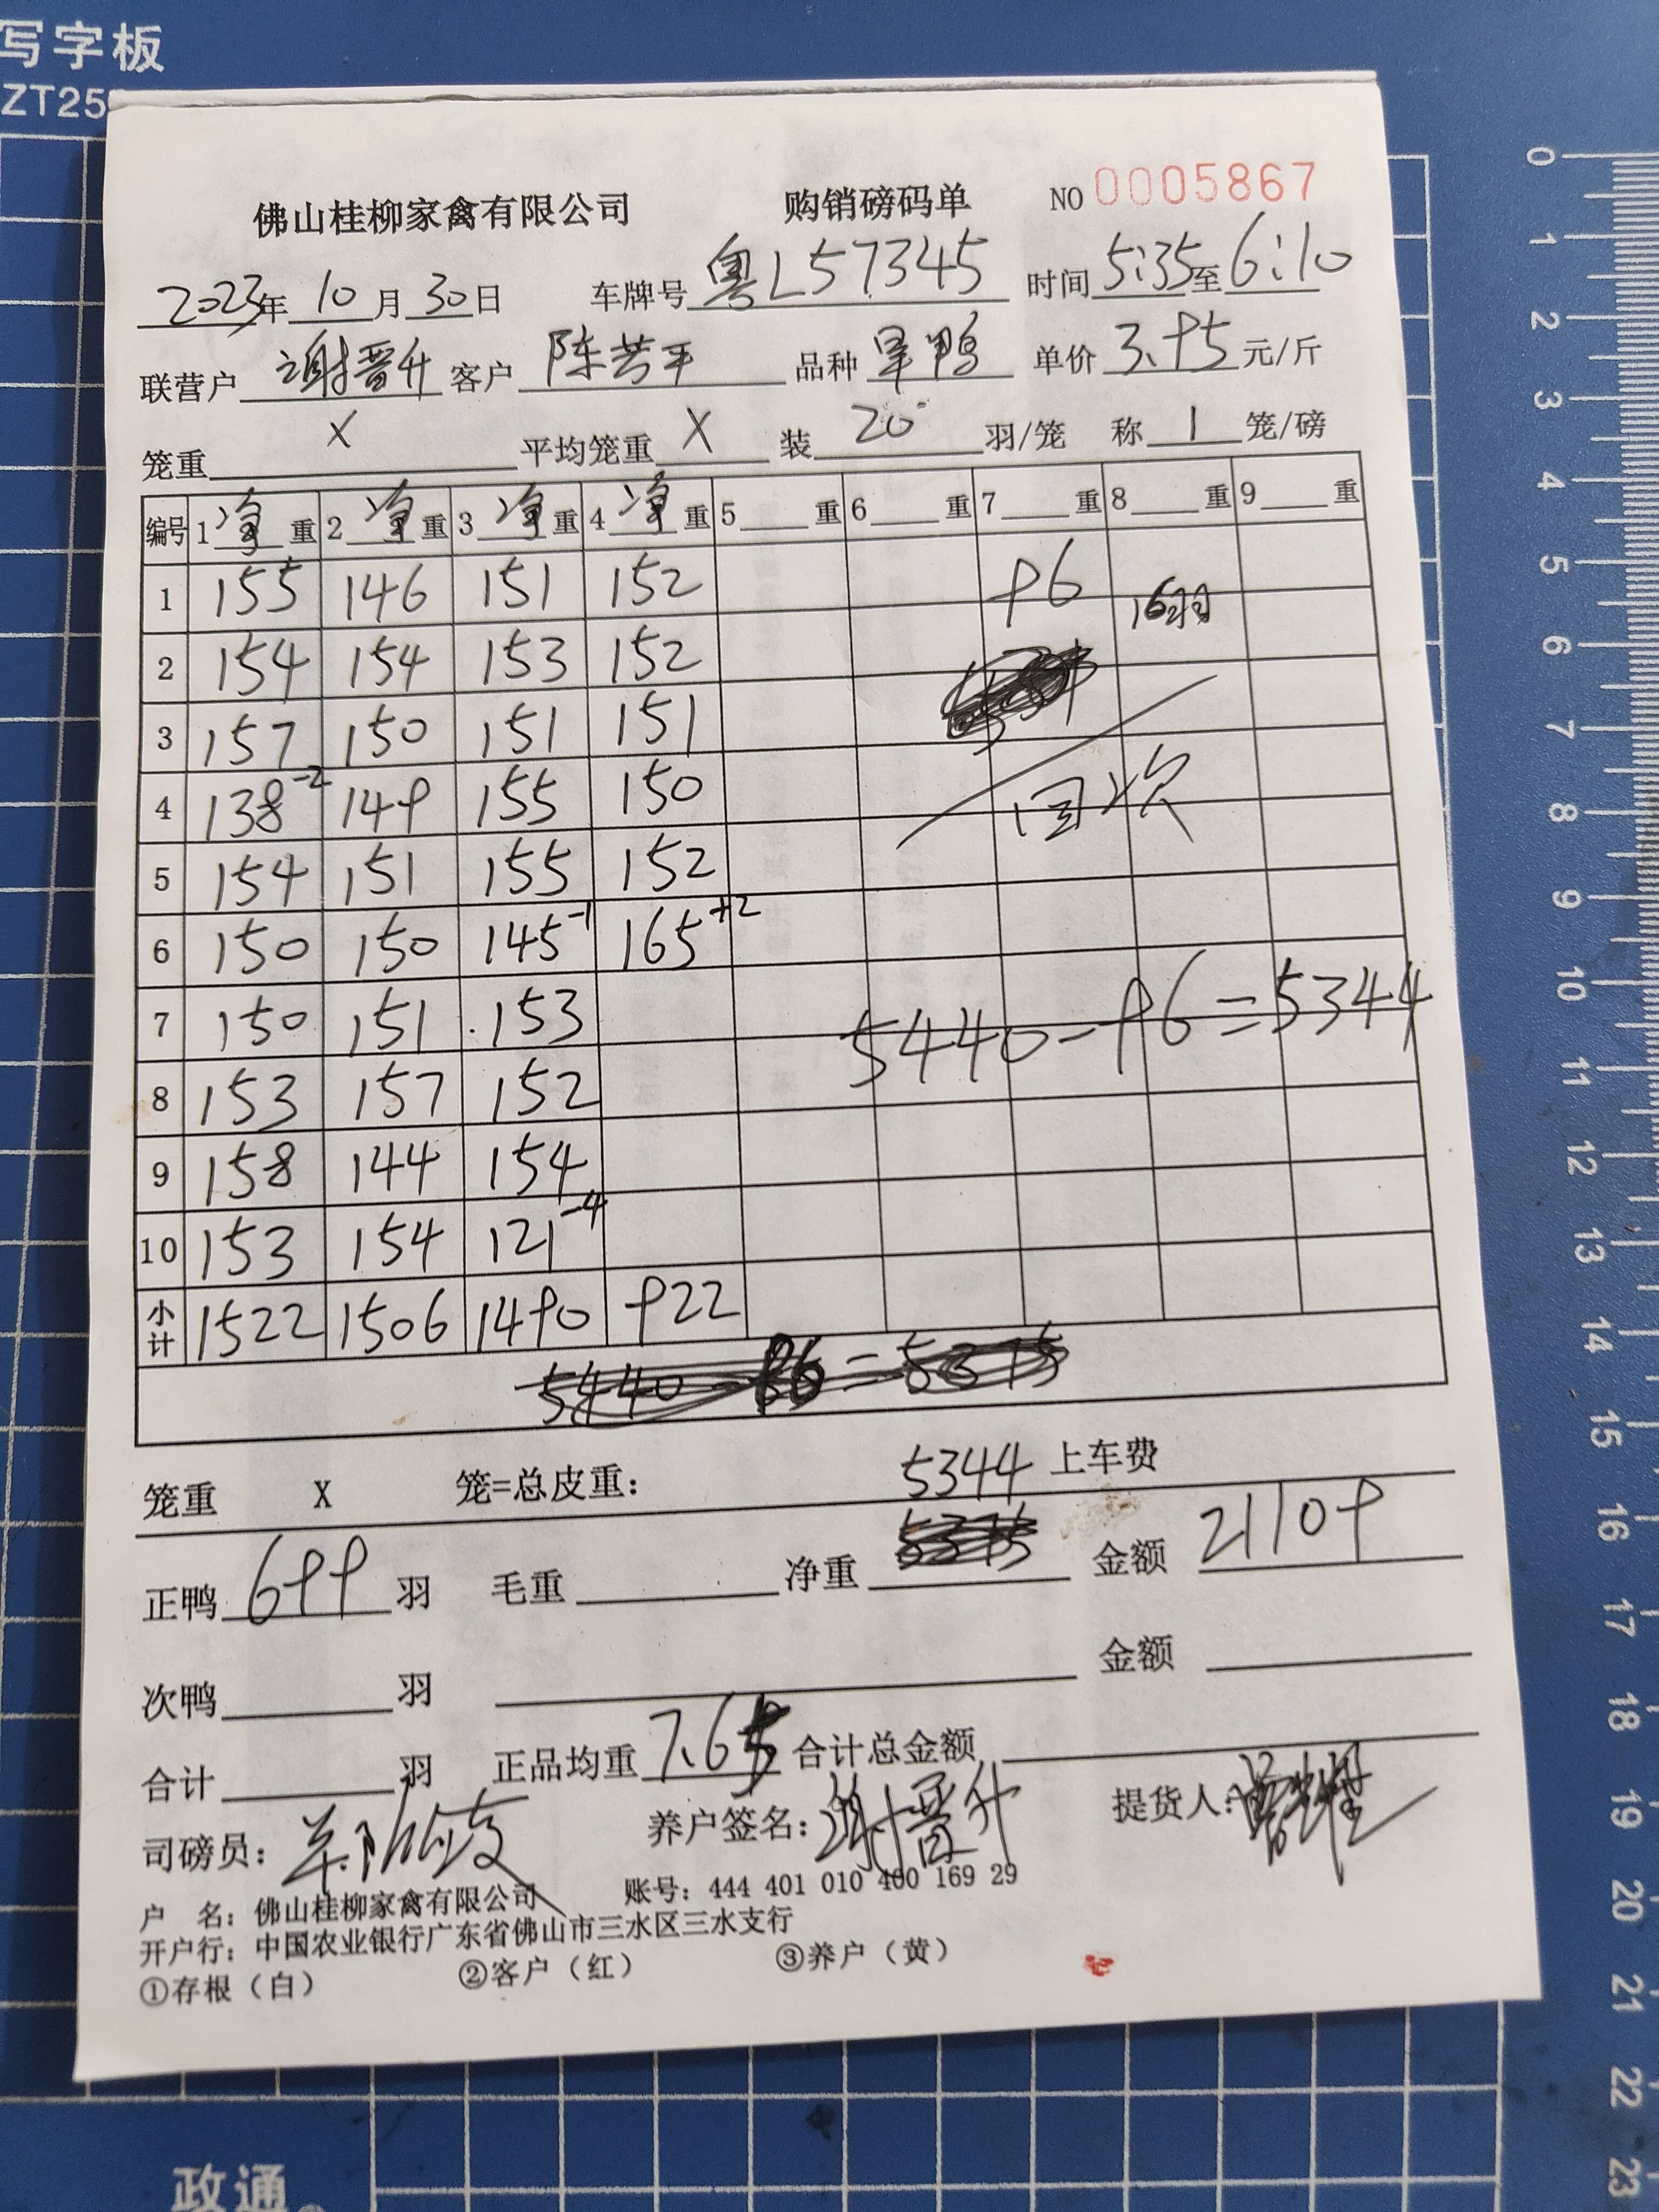 写字板
ZT25
佛山桂柳家禽有限公司 购销磅码单 NO 0005867
2023年10月30日 车牌号 粤L57345 时间 5:35至6:10
联营户 谢晋升 客户 陈芸平 品种 旱鸭 单价 3.95 元/斤
笼重 X 平均笼重 X 装 20 羽/笼 称 1 笼/磅
编号 1净重 2净重 3净重 4净重 5 重 6 重 7 重 8 重 9 重
1 155 146 151 152 96 16羽
2 154 154 153 152
3 157 150 151 151
4 138-2 149 155 150 回次
5 154 151 155 152
6 150 150 145-1 165+2
7 150 151 153 5440-96=5344
8 153 157 152
9 158 144 154
10 153 154 121-4
小计 1522 1506 1490 922
笼重 X 笼=总皮重: 5344 上车费
正鸭 699 羽 毛重 净重 金额 21109
次鸭 羽 金额
合计 羽 正品均重 7.65 合计总金额
司磅员: 养户签名: 谢晋升 提货人:
户 名: 佛山桂柳家禽有限公司 账号: 444 401 010 400 169 29
开户行: 中国农业银行广东省佛山市三水区三水支行
①存根(白) ②客户(红) ③养户(黄)
政通
0
1
2
3
4
5
6
7
8
9
10
11
12
13
14
15
16
17
18
19
20
21
22
23